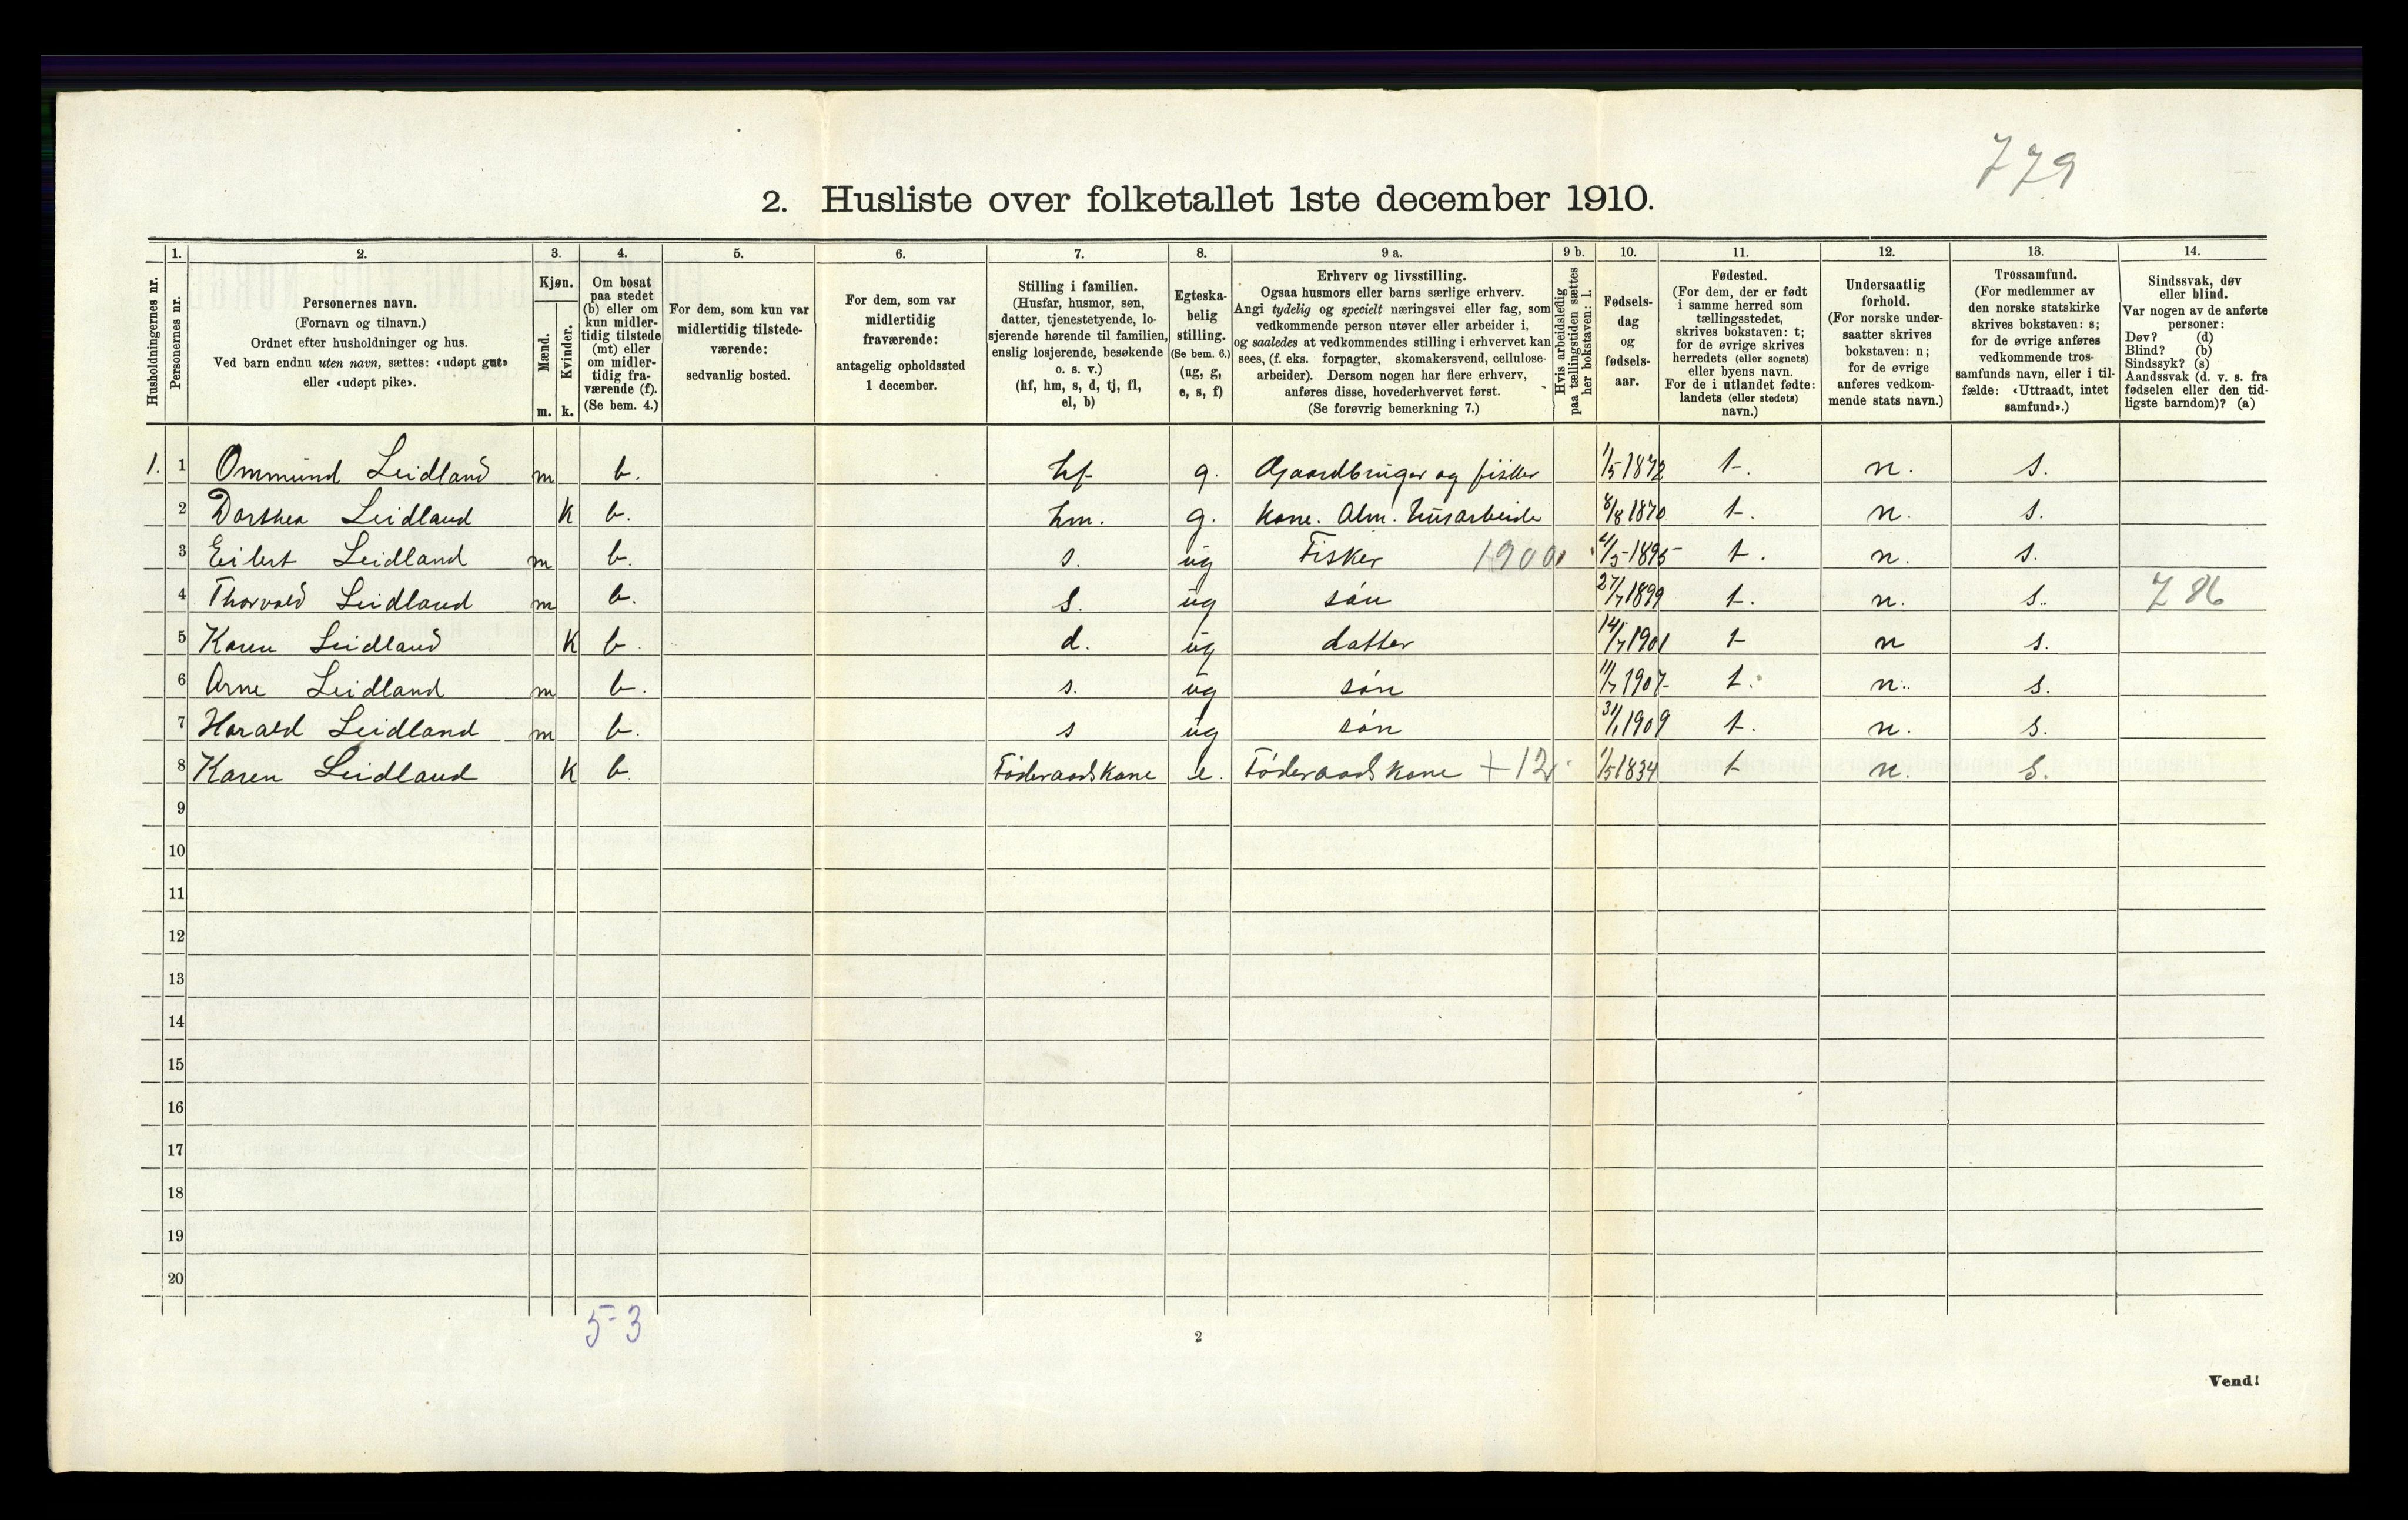 779
2. Husliste over folketallet 1ste december 1910.
Husholdningernes nr.
1. Personernes nr.
2. Personernes navn.
(Fornavn og tilnavn.)
Ordnet efter husholdninger og hus.
Ved barn endnu uten navn, sættes: «udøpt gut»
eller «udøpt pike».
3. Kjøn.
Mænd. m.
Kvinder. k.
4. Om bosat
paa stedet
(b) eller om
kun midler-
tidig tilstede
(mt) eller
om midler-
tidig fra-
værende (f).
(Se bem. 4.)
5. For dem, som kun var
midlertidig tilstede-
værende:
sedvanlig bosted.
6. For dem, som var
midlertidig
fraværende:
antagelig opholdssted
1 december.
7. Stilling i familien.
(Husfar, husmor, søn,
datter, tjenestetyende, lo-
sjerende hørende til familien,
enslig losjerende, besøkende
o. s. v.)
(hf, hm, s, d, tj, fl,
el, b)
8. Egteska-
belig
stilling.
(Se bem. 6.)
(ug, g,
e, s, f)
9 a. Erhverv og livsstilling.
Ogsaa husmors eller barns særlige erhverv.
Angi tydelig og specielt næringsvei eller fag, som
vedkommende person utøver eller arbeider i,
og saaledes at vedkommendes stilling i erhvervet kan
sees, (f. eks. forpagter, skomakersvend, cellulose-
arbeider). Dersom nogen har flere erhverv,
anføres disse, hovederhvervet først.
(Se forøvrig bemerkning 7.)
9 b. Hvis arbeidsledig
paa tællingstiden sættes
her bokstaven: l.
10. Fødsels-
dag
og
fødsels-
aar.
11. Fødested.
(For dem, der er født
i samme herred som
tællingsstedet,
skrives bokstaven: t;
for de øvrige skrives
herredets (eller sognets)
eller byens navn.
For de i utlandet fødte:
landets (eller stedets)
navn.)
12. Undersaatlig
forhold.
(For norske under-
saatter skrives
bokstaven: n;
for de øvrige
anføres vedkom-
mende stats navn.)
13. Trossamfund.
(For medlemmer av
den norske statskirke
skrives bokstaven: s;
for de øvrige anføres
vedkommende tros-
samfunds navn, eller i til-
fælde: «Uttraadt, intet
samfund».)
14. Sindssvak, døv
eller blind.
Var nogen av de anførte
personer:
Døv? (d)
Blind? (b)
Sindssyk? (s)
Aandssvak (d. v. s. fra
fødselen eller den tid-
ligste barndom)? (a)
1. 1 Ommund Leidland m b. hf g. Gaardbruger og fisker 1/5 1872 t. n. s.
2 Dorthea Leidland k b. hm. g. kone. Alm. husarbeide 8/8 1870 t. n. s.
3 Eilert Leidland m b. s. ug Fisker 1900 4/5-1895 t. n. s.
4 Thorvald Leidland m b. s. ug søn 27/7 1899 t. n. s. 786
5 Karen Leidland k b. d. ug datter 14/7 1901 t n s.
6 Arne Leidland m b. s. ug søn 11/7 1907 t. n. s.
7 Harald Leidland m b. s ug søn 31/1 1909 t. n. s.
8 Karen Leidland k b. Føderaadskone e. Føderaadskone +12 1/5 1834 t n. s.
9
10
11
12
13
14
15
16
17
18
19
20
5-3
2
Vend!